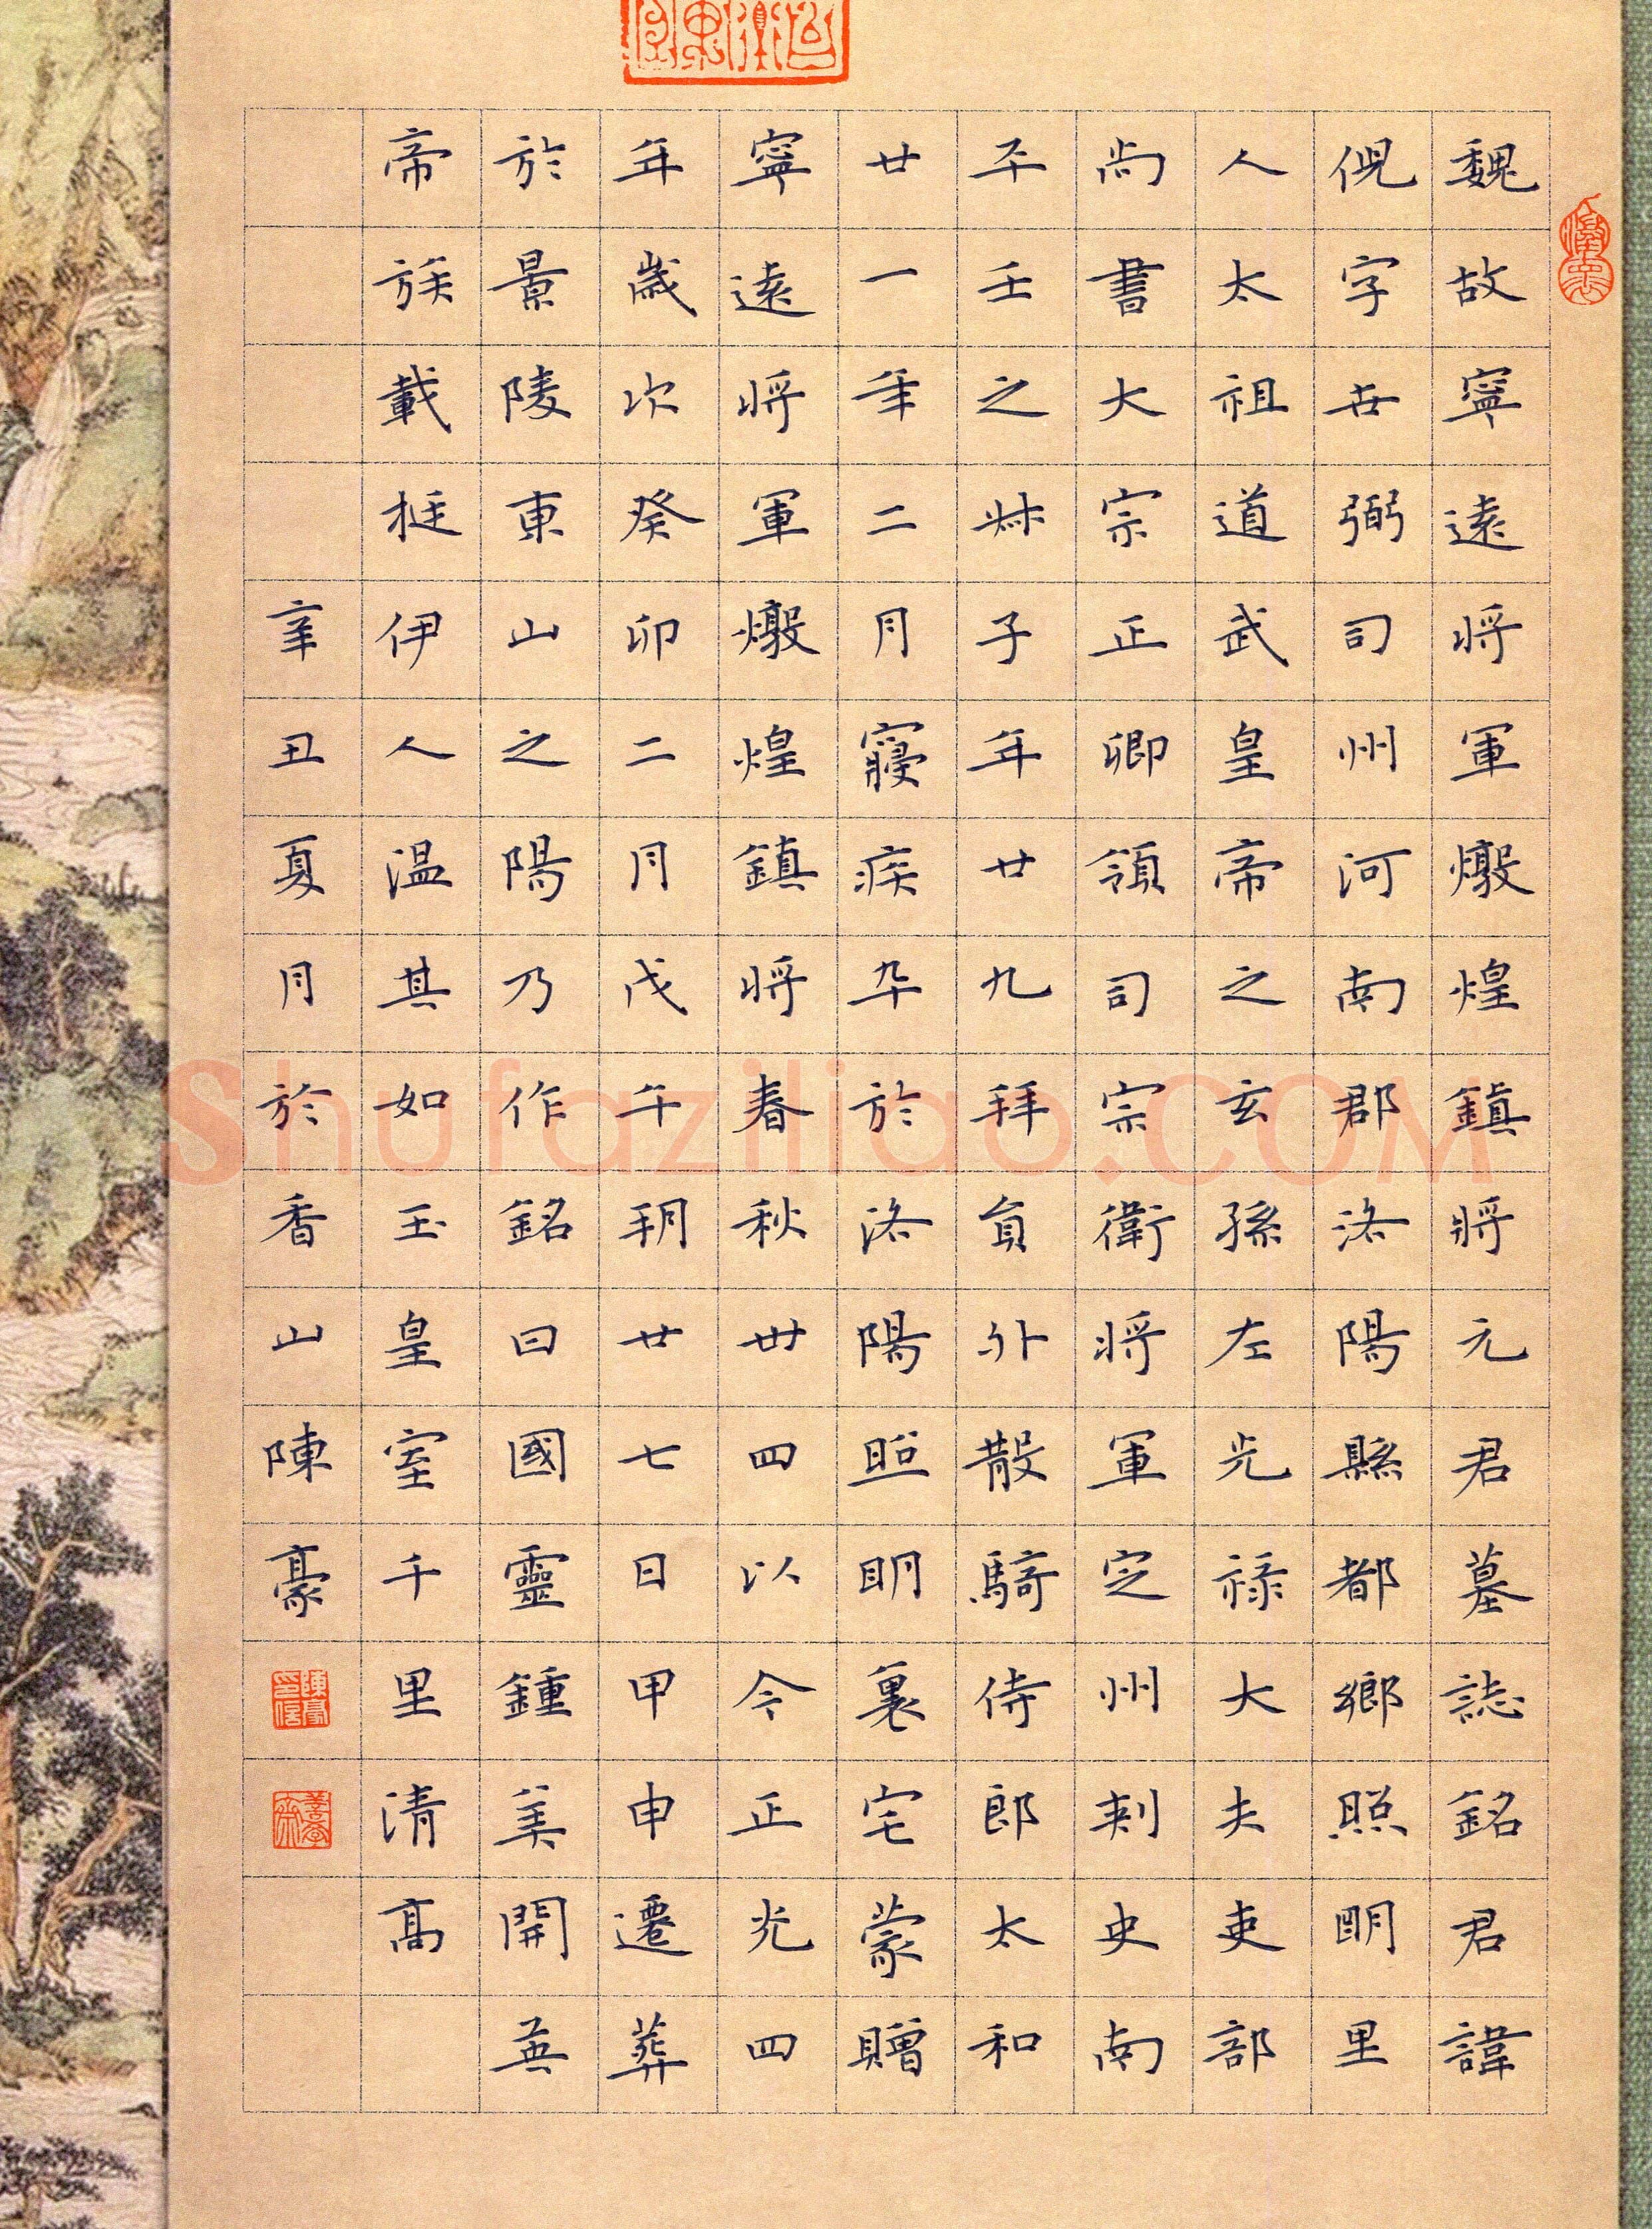 魏故寧遠將軍燉煌鎮將元君墓誌銘君諱
倪字世弼司州河南郡洛陽縣都鄉照明里
人太祖道武皇帝之玄孫左光祿大夫吏部
尚書大宗正卿領司宗衛將軍定州刺史南
平王之叔子年廿九拜員外散騎侍郎太和
廿一年二月寢疾卒於洛陽照明裏宅蒙贈
寧遠將軍燉煌鎮將春秋卌四以今正光四
年歲次癸卯二月戊午朔廿七日甲申遷葬
於景陵東山之陽乃作銘曰國靈鍾美開英
帝族載挺伊人溫其如玉皇室千里清高
辛丑夏月於香山陳豪
陳豪印信
Shufaziliao.COM